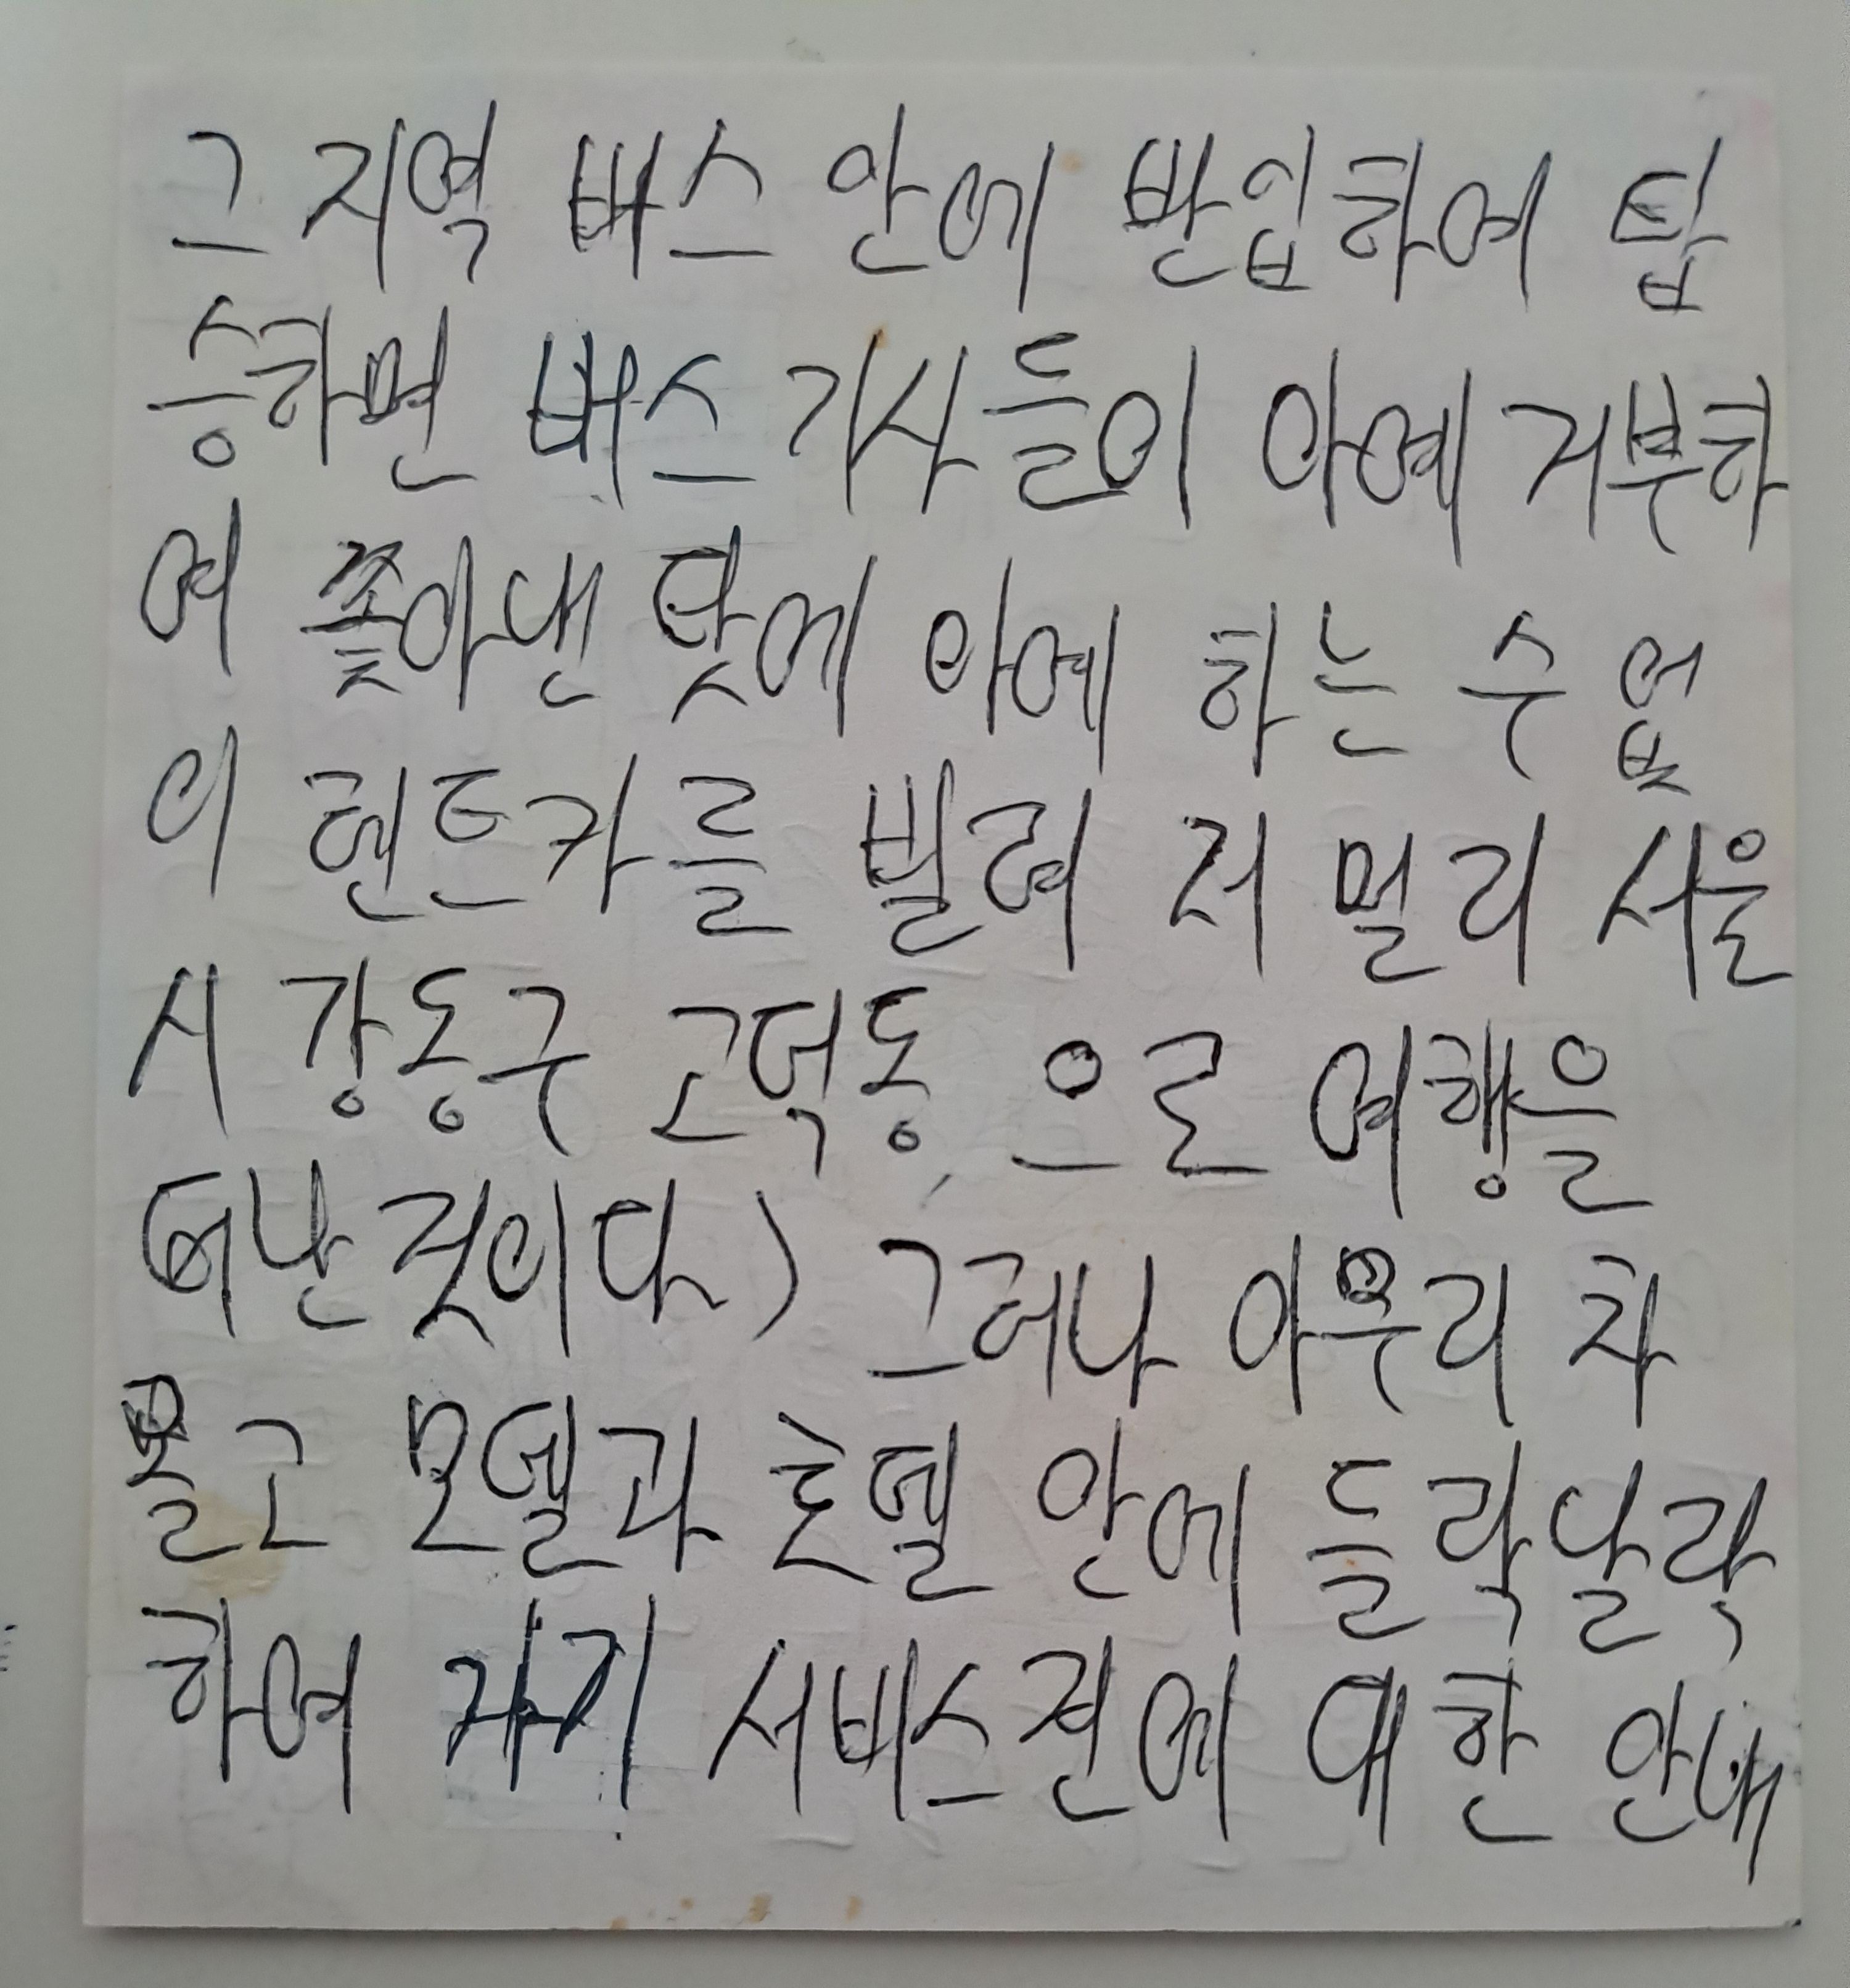 그 지역 버스 안에 반입하여 탑
승하면 버스 기사들이 아예 거부하
여 쫓아낸 탓에 아예 하는 수 없
이 렌트카를 빌려 저 멀리 서울
시 강동구 고덕동으로 여행을
떠난 것이다) 그러나 아무리 차
몰고 모텔과 호텔 안에 들락날락
하여 자기 서비스권에 대한 안내